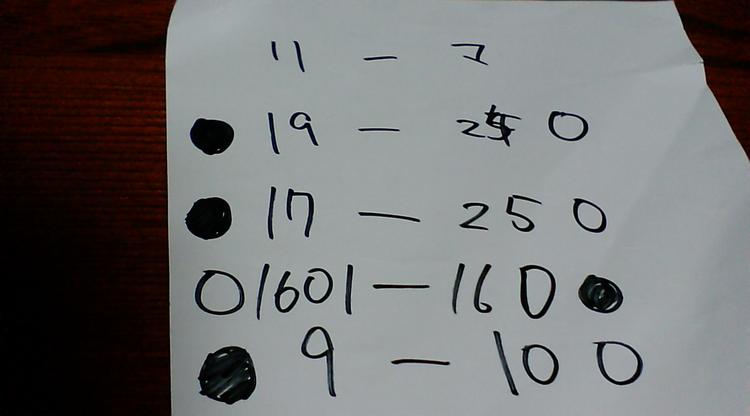 11 —
● 19 — 25 ○
● 17 — 25 ○
○ 1601 — 160 ●
● 9 — 10 ○